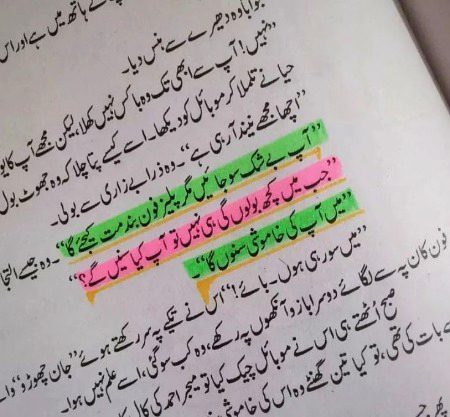 ہاتھ میں ہے اور اس
جواباً وہ دھیرے سے ہنس دیا۔
”نہیں! آپ سے ابھی تک وہ باکس نہیں کھلا، لیکن مجھے آپ کا یو
حیا نے تلملا کر موبائل کو دیکھا۔ اسے کیسے پتا چلا کہ وہ جھوٹ بول
”اچھا مجھے نیند آ رہی ہے“۔ وہ ذرا بے زاری سے بولی۔
”آپ بے شک سو جائیں مگر پلیز فون بند مت کیجئے گا“۔ وہ جیسے التجا
”جب میں کچھ بولوں گی ہی نہیں تو آپ کیا سنیں گے؟“
”میں آپ کی خاموشی سنوں گا“۔
”میں سو رہی ہوں۔ بائے!“ اس نے تکیے پہ سر رکھتے ہوئے ”جان چھوڑو“ والے
فون کان پہ سے لگائے دوسرا بازو آنکھوں پہ رکھے، وہ کب سو گئی، اسے علم نہیں ہوا۔
صبح اٹھتے ہی اس نے موبائل چیک کیا تو میجر احمد کی کال
سے بات کی تھی، تو کیا تین گھنٹے وہ اس کی خاموشی